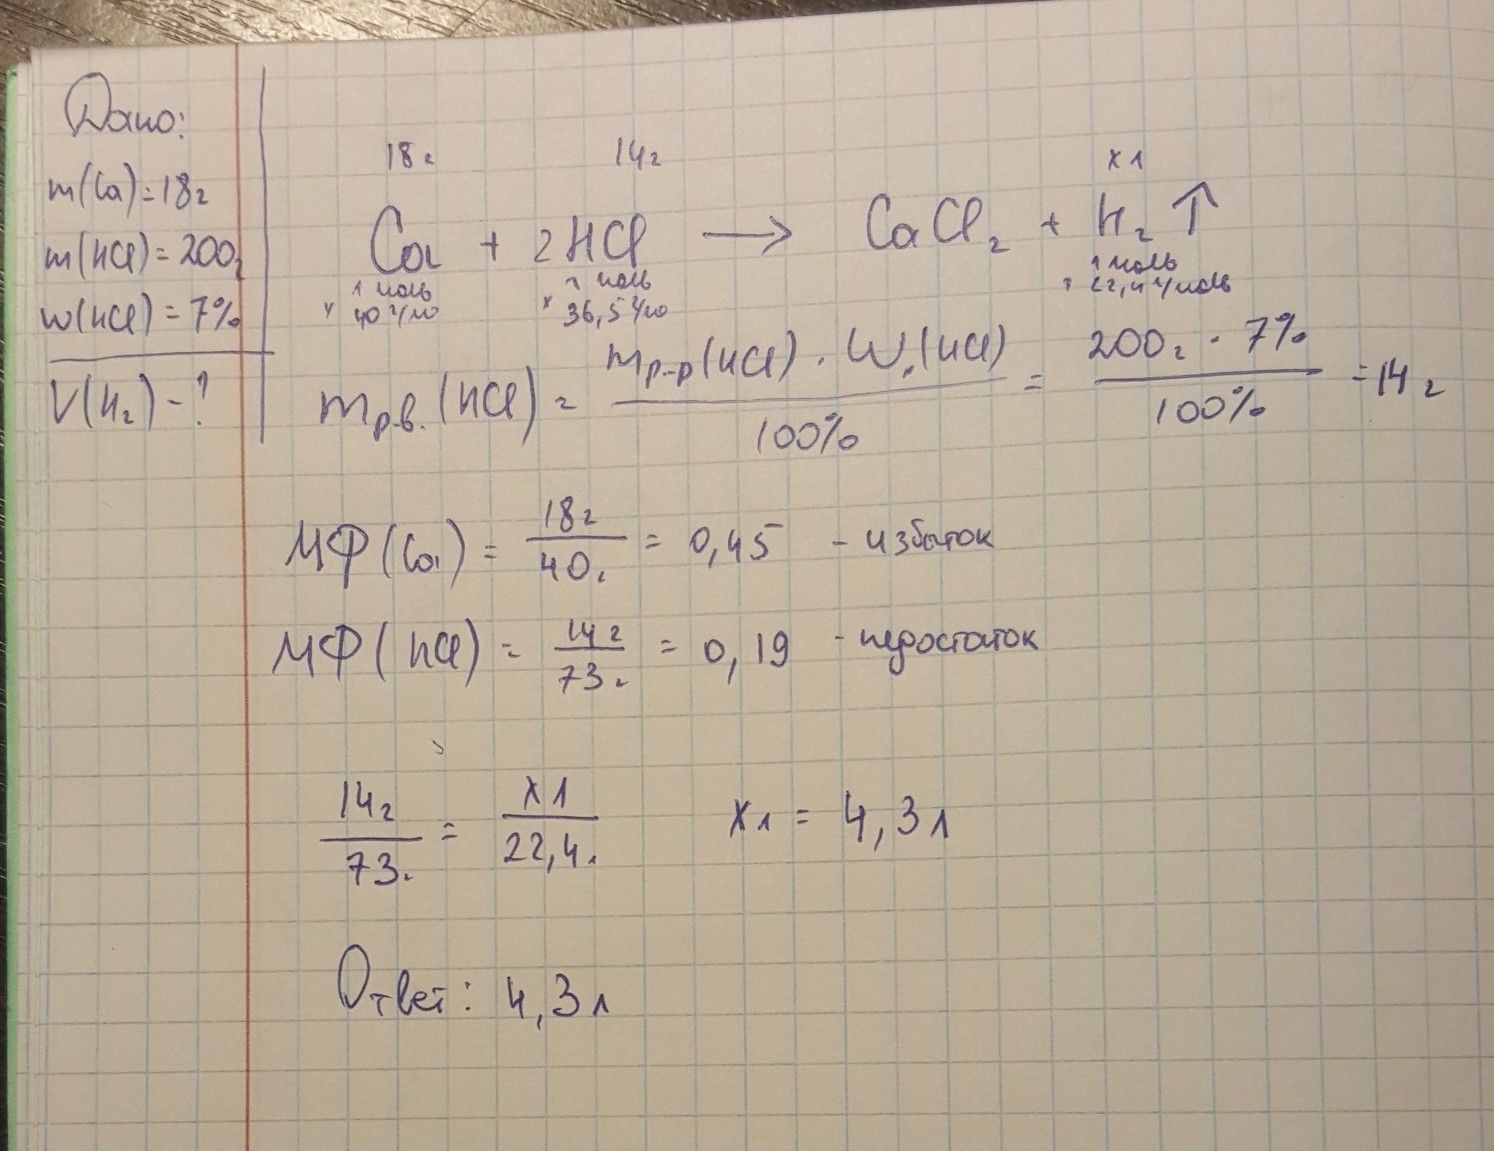 Дано:
m(Ca)=18г
m(HCl)=200г
w(HCl)=7%
V(H₂)-?
18г 14г x л
Ca + 2HCl → CaCl₂ + H₂↑
1 моль 2 моль 1 моль
40 г/мо 36,5 г/мо 22,4 л/моль
mр.в.(HCl) = mр-р(HCl) · W(HCl) / 100% = 200г · 7% / 100% = 14 г
МФ(Ca) = 18г / 40г = 0,45 - избыток
МФ(HCl) = 14г / 73г = 0,19 - недостаток
14г / 73г = x л / 22,4л x л = 4,3 л
Ответ: 4,3 л